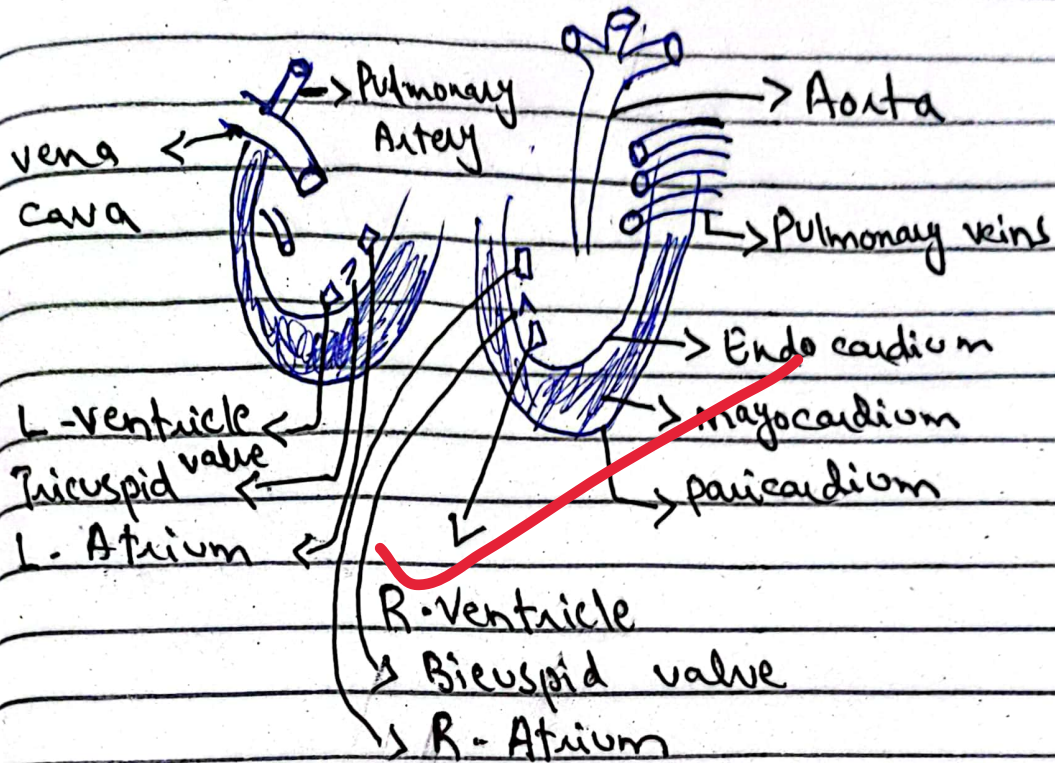 Pulmonary
Artery
Aorta
vena
cava
Pulmonary veins
Endocardium
mayocardium
paricardium
L-ventricle
Tricuspid valve
L. Atrium
R.ventricle
Bicuspid valve
R- Atrium